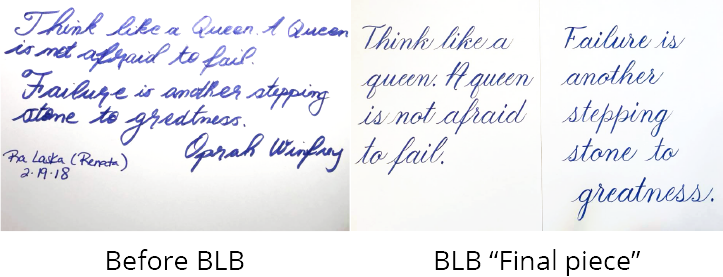 Think like a Queen. A Queen
is not afraid to fail.
Failure is another stepping
stone to greatness.
Oprah Winfrey
Ra Laska (Renata)
2.19.18
Think like a
queen. A queen
is not afraid
to fail.
Failure is
another
stepping
stone to
greatness.
Before BLB
BLB “Final piece”